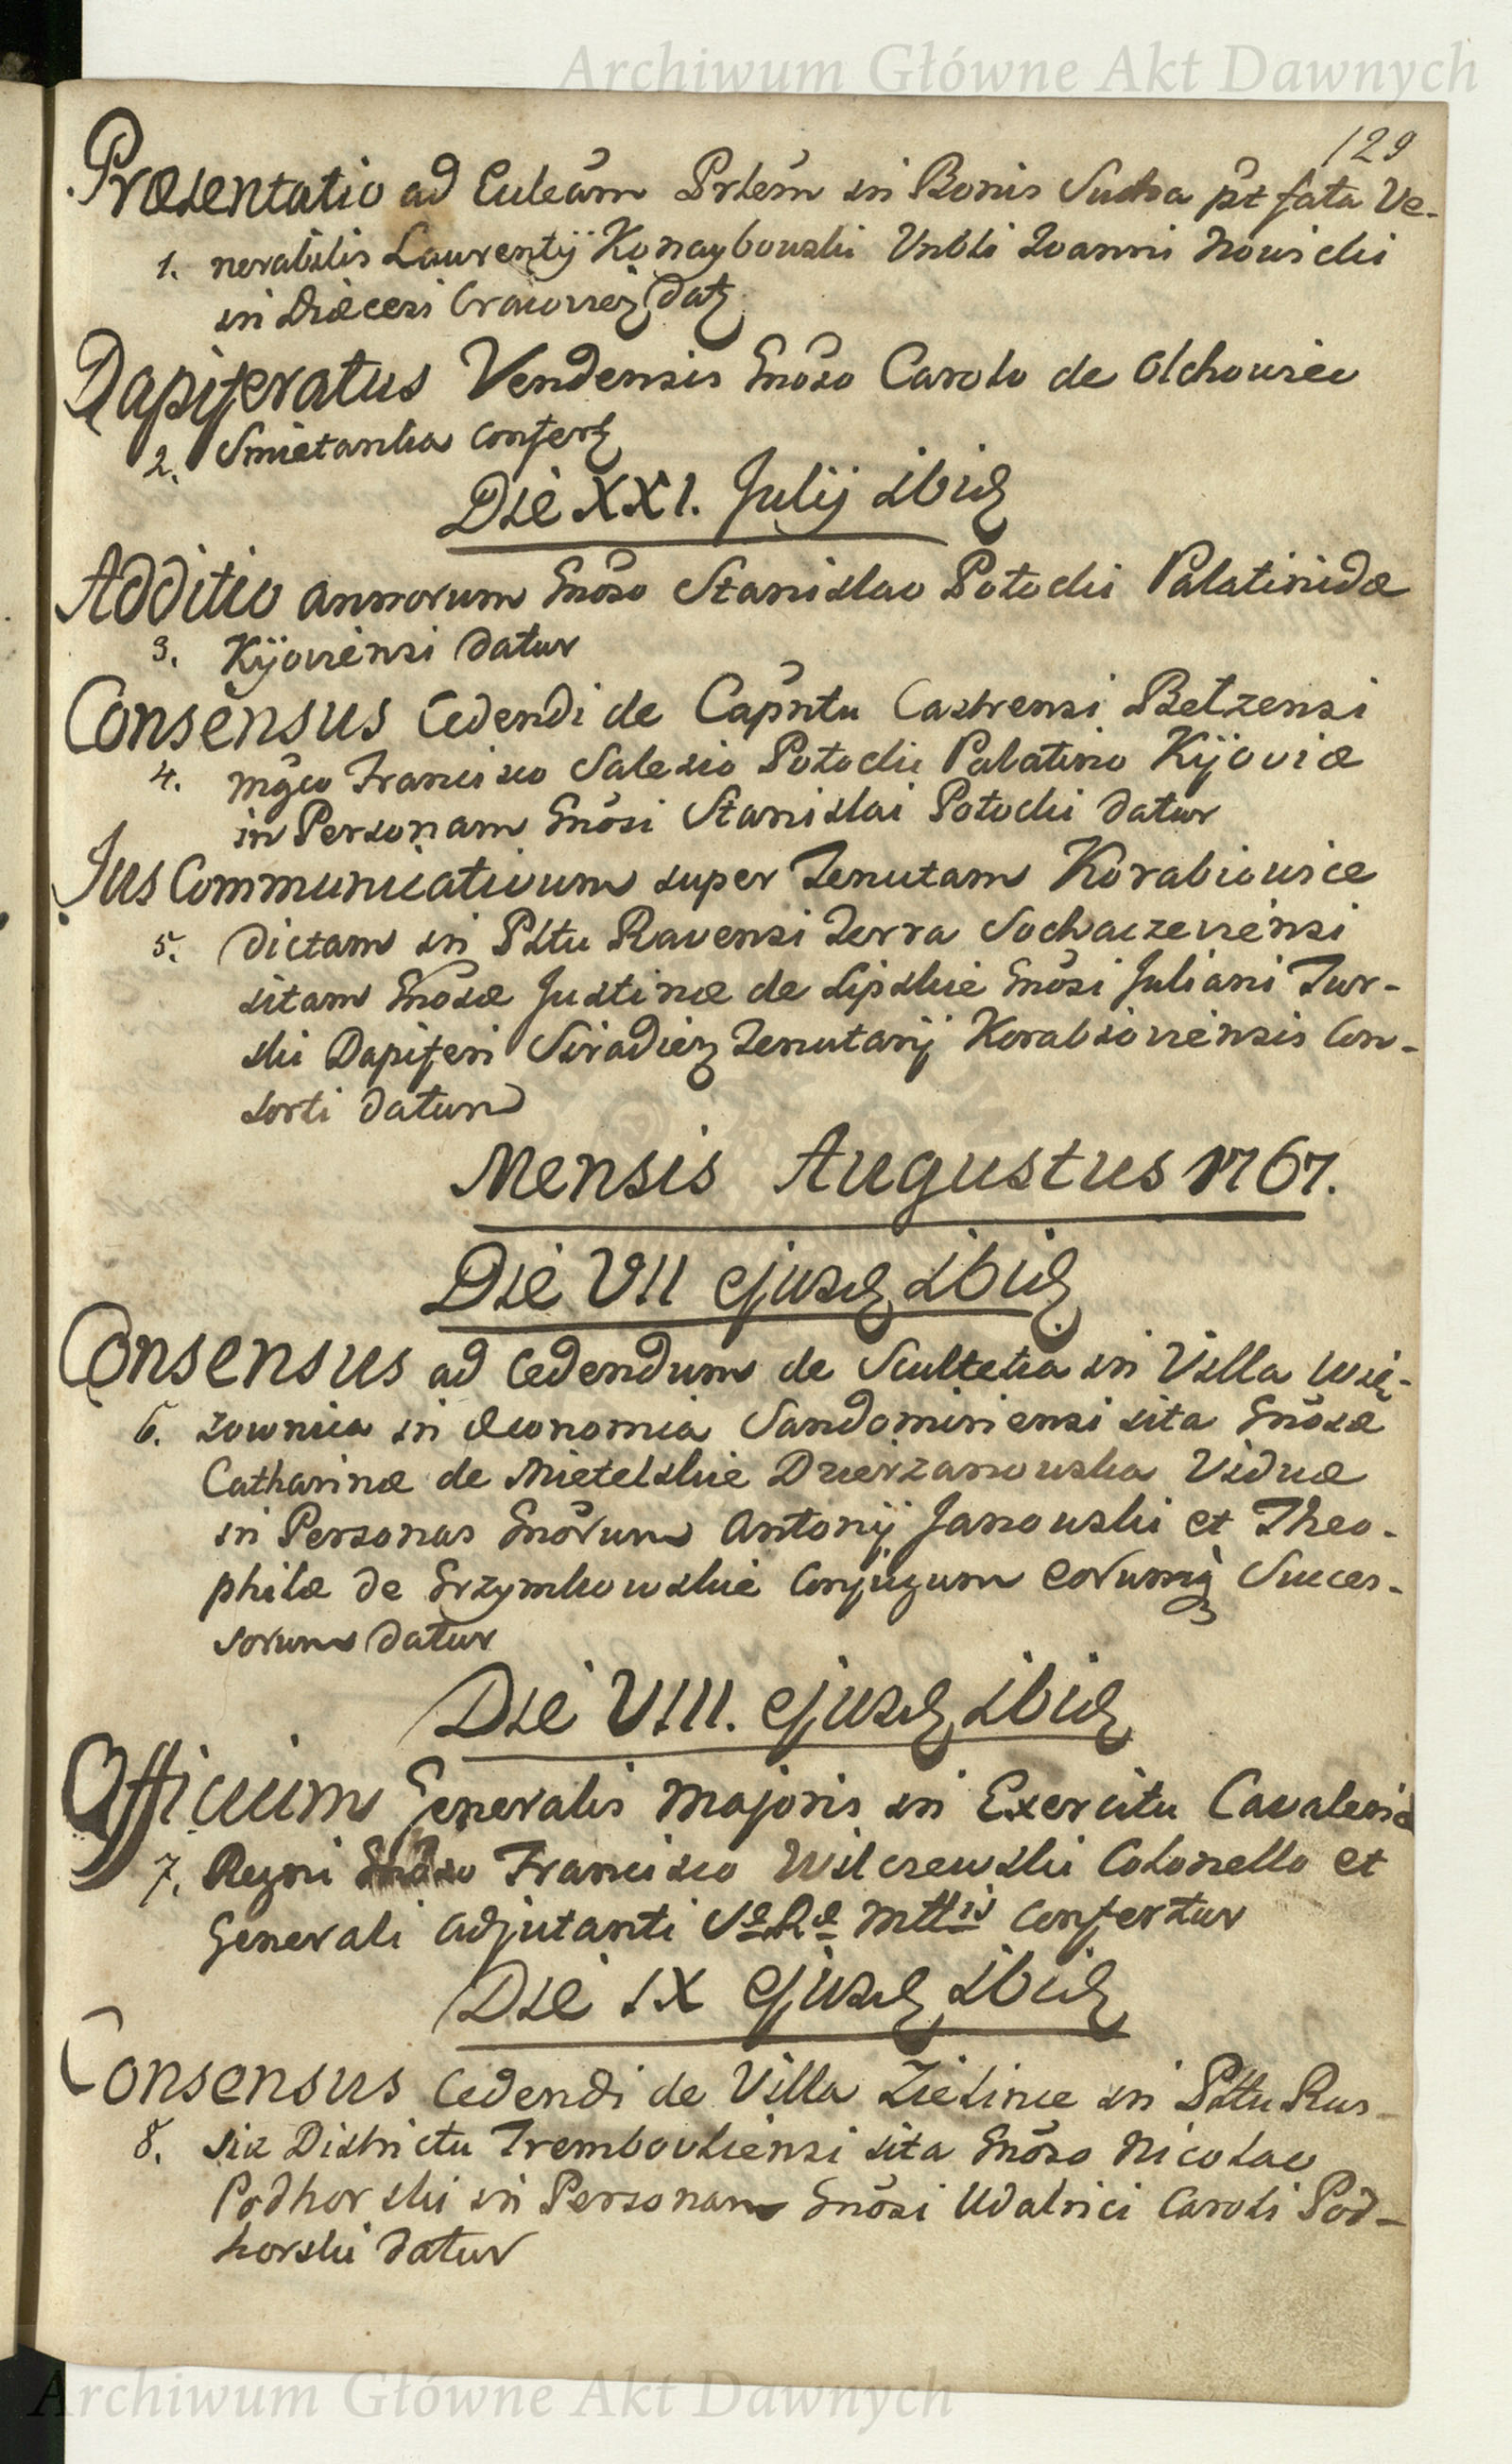 Archiwum Główne Akt Dawnych
129
Præsentatio ad Ecleam Prlem in Bonis Sucha pt fata Ve-
1. nerabilis Laurentÿ Konaybowski Vnbli Joanni Nowicki
in Diæcesi Cracovien Dat
Dapiferatus Vendensis Gnoso Carolo de Olchowiec
2. Smietanka Confert
Die XXI. Julij ibid
Additio annorum Gnoso Stanislao Potocki Palatinidæ
3. Kÿoviensi datur
Consensus Cedendi de Capntu Castrensi Betzensi
4. Mgco Francisco Salesio Potocki Palatino Kÿoviæ
in Personam Gnosi Stanislai Potocki datur
Jus Communicativum super Tenutam Korabiowice
5. dictam in Pltu Ravensi Terra Sochaczeviensi
sitam Gnosæ Justinæ de Lipskie Gnosi Juliani Tur-
ski Dapiferi Siradien Tenutarij Korabioviensis Con-
sorti datum
Mensis Augustus 1767.
Die VII ejusd ibid
Consensus ad Cedendum de Scultetia in Villa Wią-
6. zownica in Œconomia Sandomiriensi sita Gnosæ
Catharinæ de Mietelskie Dzierzanowska Viduæ
in Personas Gnorum Antonij Janowski et Theo-
philæ de Grzymkowskie Conjugum eorumq Succes-
sorum datur
Die VIII. ejusd ibid
Officium Generalis Majoris in Exercitu Cavaleriæ
7. Regni Gnoso Francisco Wilczewski Colonello et
Generali Adjutanti Sæ Ræ Mttis Confertur
Die IX ejusd ibid
Consensus Cedendi de Villa Zielince in Pltu Rus-
8. siæ Districtu Trembovliensi sita Gnoso Nicolao
Podhorski in Personam Gnosi Udalrici Caroli Pod-
horski datur
Archiwum Główne Akt Dawnych